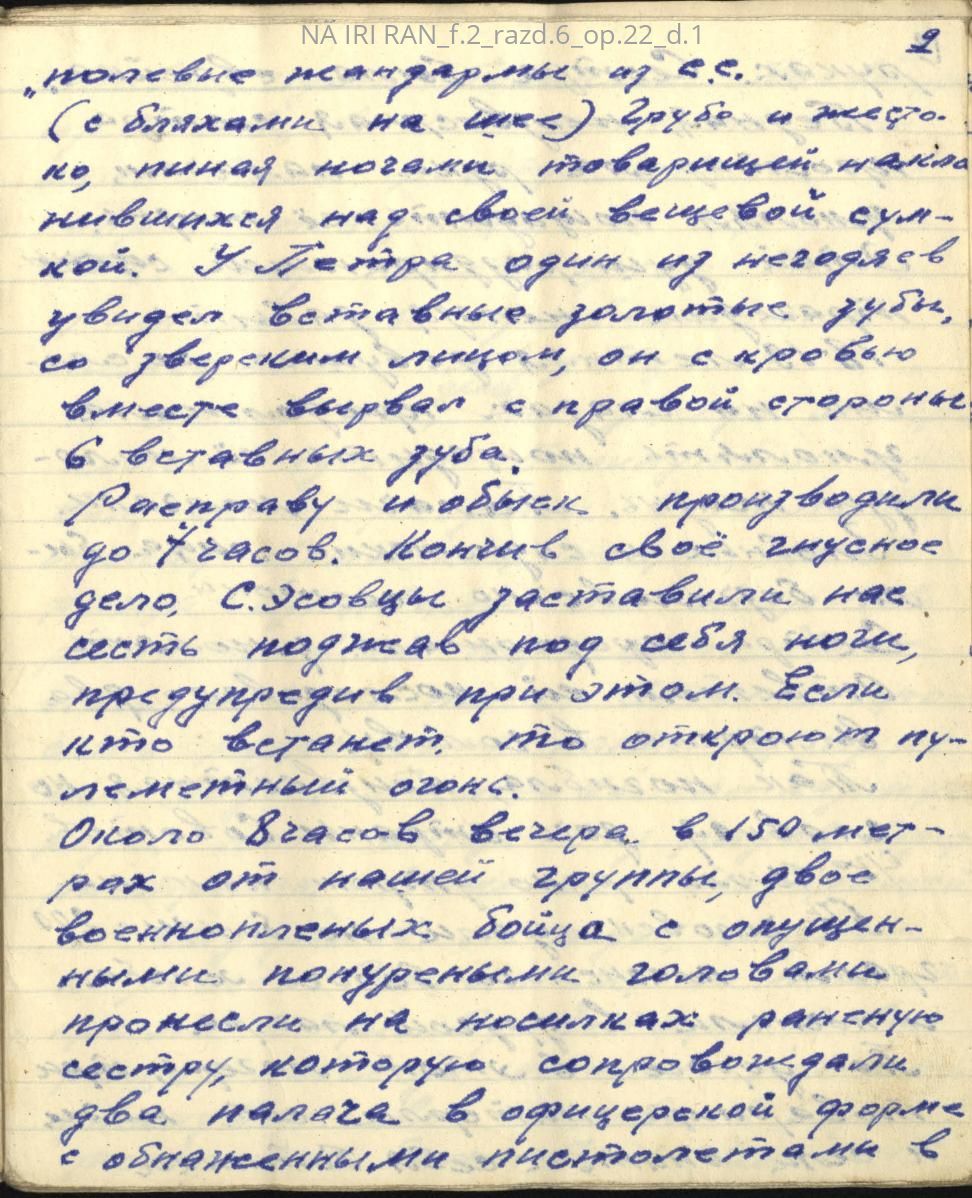 NÄ IRI RAN_f.2_razd.6_op.22_d.1
9
„полевые жандармы из с.с.
(с бляхами на шее) Грубо и жесто-
ко, пиная ногами товарищей накло
нившихся над своей вещевой сум-
кой. У Петра один из негодяев
увидел вставные золотые зубы,
со зверским лицом, он с кровью
вместе вырвал с правой стороны
6 вставных зуба.
Расправу и обыск производили
до 7 часов. Кончив своё гнусное
дело, С.Эсовцы заставили нас
сесть поджав под себя ноги,
предупредив при этом. Если
кто встанет, то откроют пу-
леметный огонь.
Около 8 часов вечера в 150 мет-
рах от нашей группы, двое
военнопленых бойца с опущен-
ными понуреными головами
пронесли на носилках раненую
сестру, которую сопровождали
два палача в офицерской форме
с обнаженными пистолетами в